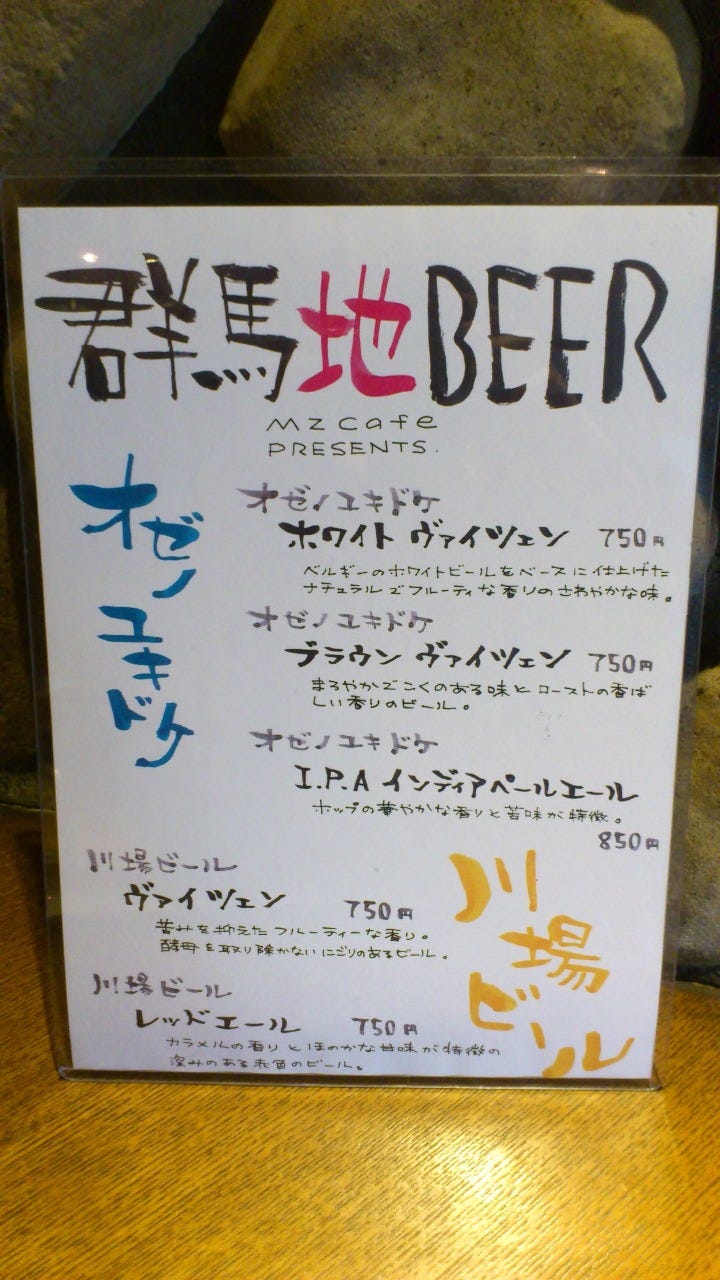 群馬地BEER
mz cafe
PRESENTS.
オゼノ
ユキドケ
オゼノユキドケ
ホワイト ヴァイツェン 750円
ベルギーのホワイトビールをベースに仕上げた
ナチュラルでフルーティな香りのさわやかな味。
オゼノユキドケ
ブラウン ヴァイツェン 750円
まろやかでこくのある味とローストの香ば
しい香りのビール。
オゼノユキドケ
I.P.A インディアペールエール
ホップの華やかな香りと苦味が特徴。
850円
川場ビール
ヴァイツェン 750円
苦みを抑えたフルーティーな香り。
酵母を取り除かないにごりのあるビール。
川場ビール
レッドエール 750円
カラメルの香りとほのかな甘味が特徴の
深みのある赤色のビール。
川場
ビール